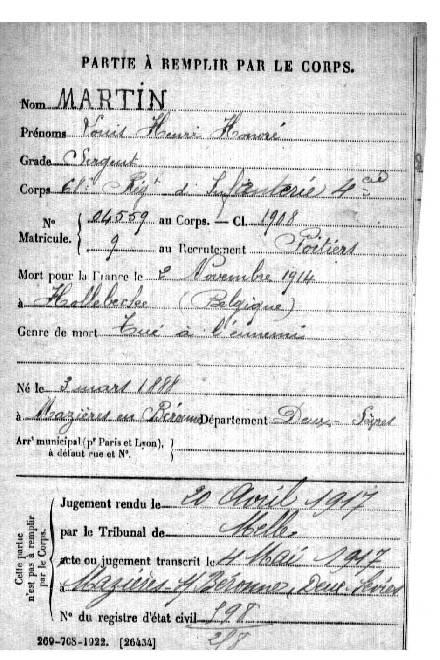 PARTIE À REMPLIR PAR LE CORPS.
Nom MARTIN
Prénoms Louis Henri Honoré
Grade Sergent
Corps 68e Régt d'Infanterie 4 cie
No Matricule. { 04559 au Corps. — Cl. 1908
9 au Recrutement Poitiers
Mort pour la France le 2 Novembre 1914
à Hollebecke (Belgique)
Genre de mort Tué à l'ennemi
Né le 3 mars 1888
à Mazières en Béronne Département Deux-Sèvres
Arrt municipal (pr Paris et Lyon), à défaut rue et No. }
Cette partie n'est pas à remplir par le Corps.
Jugement rendu le 20 Avril 1917
par le Tribunal de Melle
acte ou jugement transcrit le 4 Mai 1917
à Mazières s/ Béronne, Deux-Sèvres
No du registre d'état civil 198
269-708-1922. [26434]